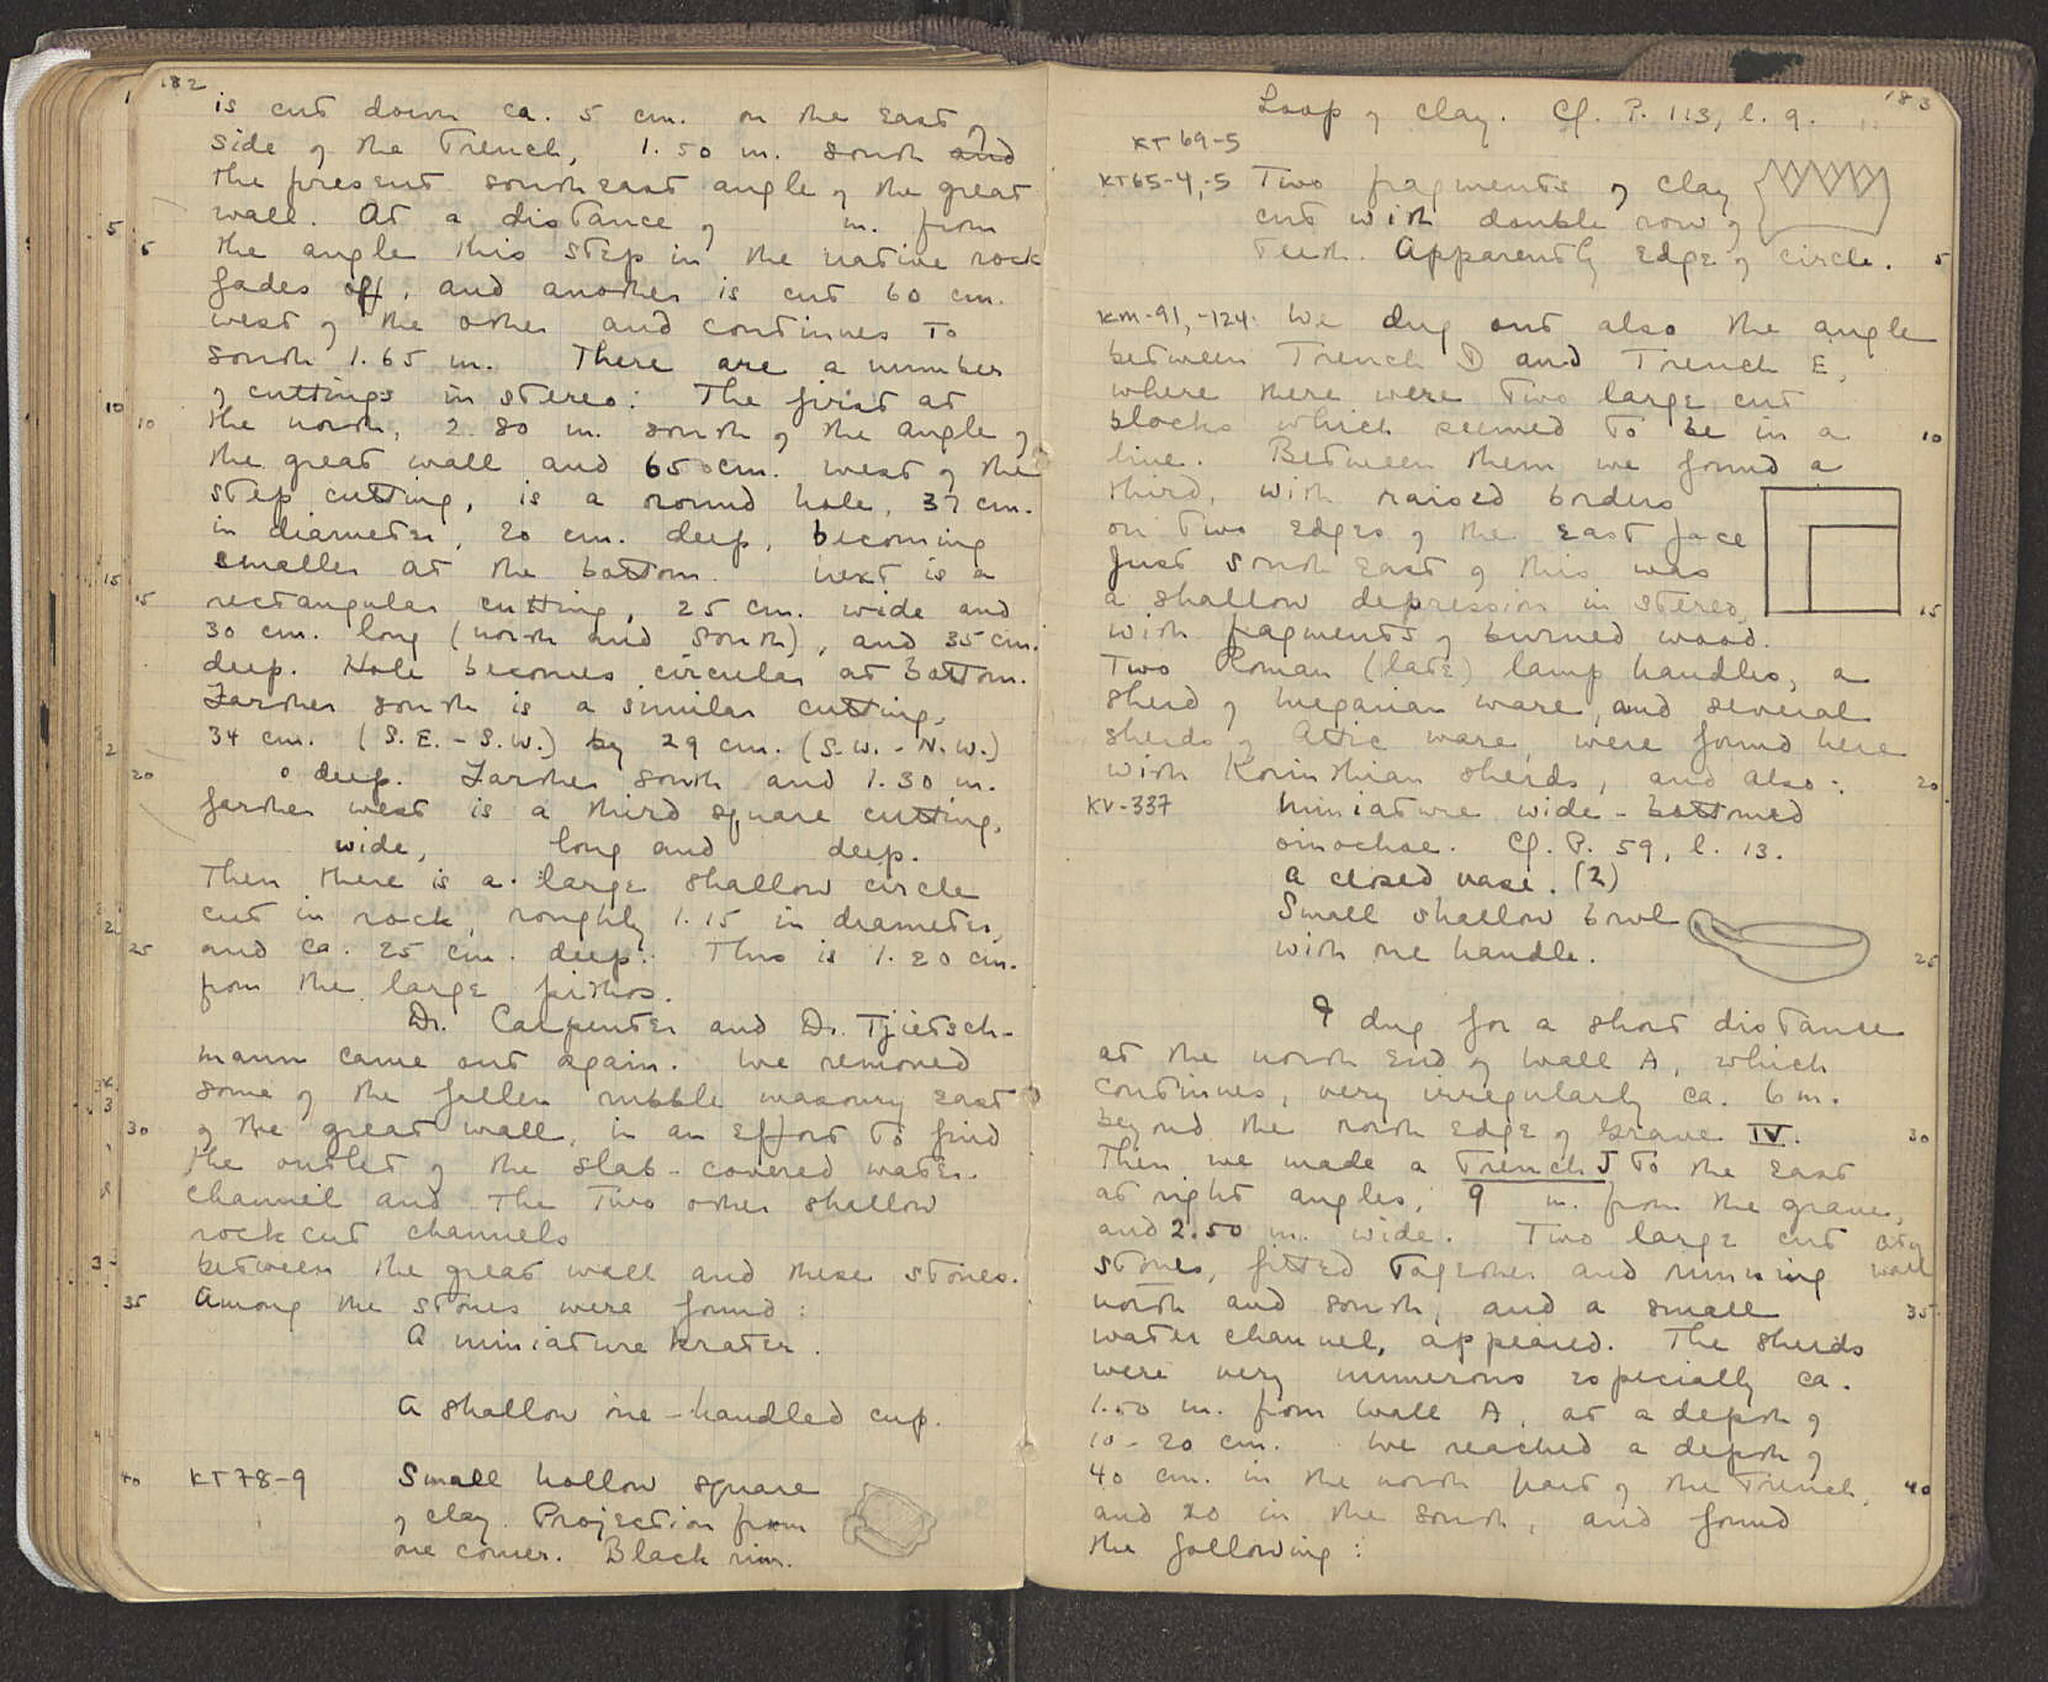 182
is cut down ca. 5 cm. on the East
side of the Trench, 1.50 m. south and of
the present southeast angle of the great
wall. At a distance of m. from
5 the angle this step in the native rock
fades off, and another is cut 60 cm.
west of the other and continues to
south 1.65 m. There are a number
of cuttings in stereo: The first at
10 the north, 2.80 m. south of the angle of
the great wall and 65 cm. west of the
step cutting, is a round hole, 37 cm.
in diameter, 20 cm. deep, becoming
smaller at the bottom. Next is a
15 rectangular cutting, 25 cm. wide and
30 cm. long (north and south), and 35 cm.
deep. Hole becomes circular at bottom.
Farther south is a similar cutting,
34 cm. (S.E.-S.W.) by 29 cm. (S.W.-N.W.)
20 deep. Farther south and 1.30 m.
farther west is a third square cutting,
wide, long and deep.
Then there is a large shallow circle
cut in rock, roughly 1.15 in diameter,
25 and ca. 25 cm. deep. This is 1.20 cm.
from the large pithos.
Dr. Carpenter and Dr. Tjietsch-
mann came out again. We removed
some of the fallen rubble masonry east
30 of the great wall, in an effort to find
the outlet of the slab-covered water-
channel and the two other shallow
rock cut channels
between the great wall and these stones.
35 Among the stones were found:
A miniature krater.
A shallow one-handled cup.
40 KT78-9 Small hollow square
of clay. Projection from
one corner. Black rim.
183
Loop of clay. Cf. P. 113, l. 9.
KT 69-5
KT65-4,-5 Two fragments of clay
cut with double row of
teeth. Apparently edge of circle. 5
KM-91,-124. We dug out also the angle
between Trench D and Trench E,
where there were two large cut
blocks which seemed to be in a 10
line. Between them we found a
third, with raised borders
on two edges of the east face
Just south east of this was
a shallow depression in stereo, 15
with fragments of burned wood.
Two Roman (late) lamp handles, a
sherd of Megarian ware, and several
sherds of Attic ware, were found here
with Korinthian sherds, and also: 20
KV-337 Miniature wide-bottomed
oinochoe. Cf. P. 59, l. 13.
A closed vase. (2)
Small shallow bowl
with one handle. 25
I dug for a short distance
at the north end of Wall A, which
continues, very irregularly ca. 6 m.
beyond the north edge of Grave IV. 30
Then we made a Trench J to the East
at right angles, 9 m. from the grave,
and 2.50 m. wide. Two large cut City
stones, fitted together and running wall
north and south, and a small 35
water channel, appeared. The sherds
were very numerous especially ca.
1.50 m. from Wall A, at a depth of
10-20 cm. We reached a depth of
40 cm. in the north part of the Trench, 40
and 20 in the south, and found
the following: